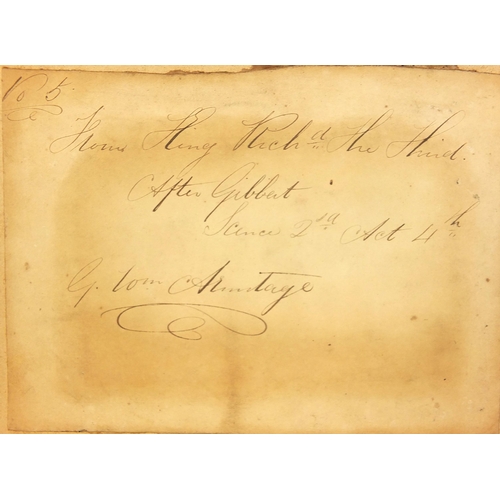 No 5.
From King Richd The Third.
After Gibbert
Scene 2nd Act 4th
G. Wm Armitage